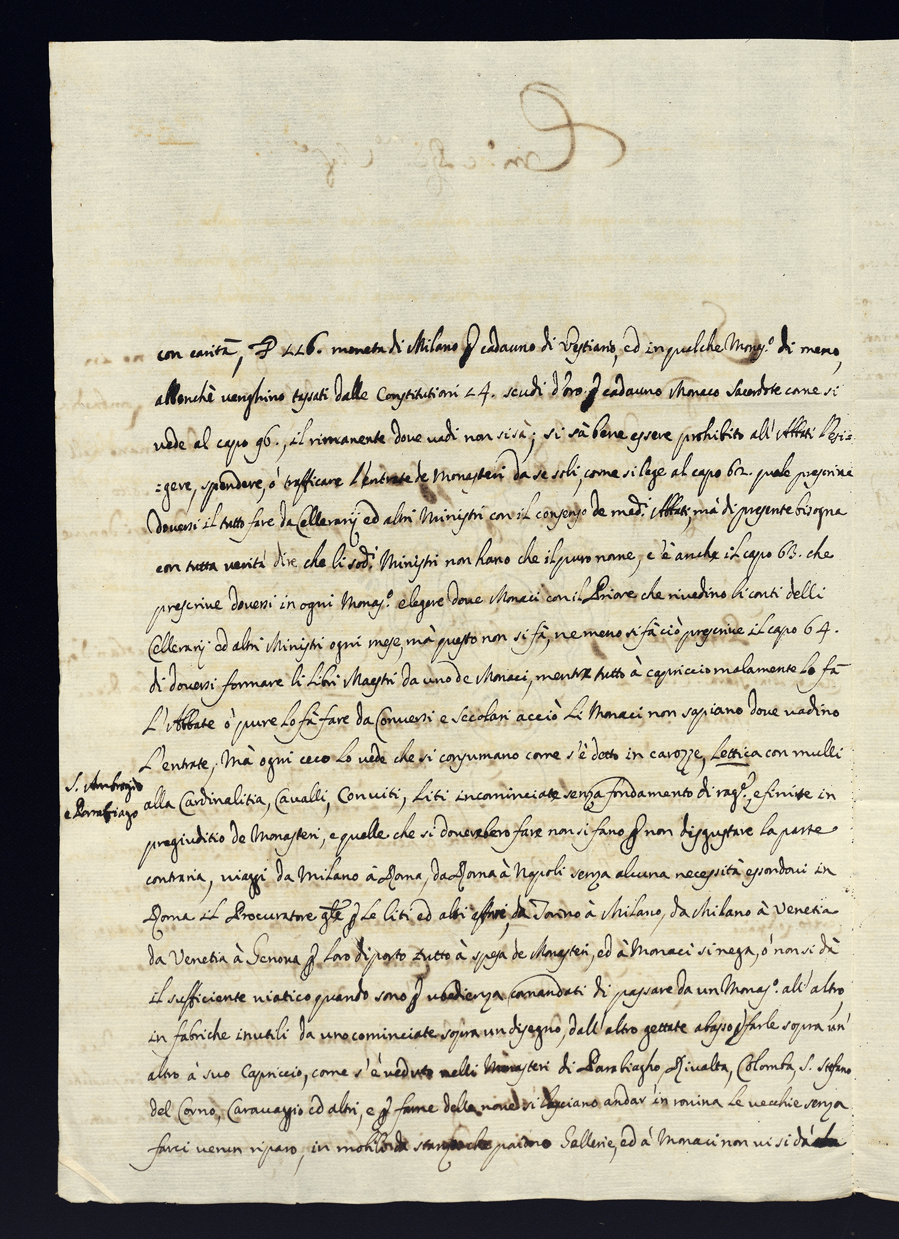 con carità, 446. moneta di Milano p cadauno di Vestiario, ed in qualche Monas.º di meno,
allonchè venghino tassati dalle Constitutioni 24. scudi d'oro p cadauno Monaco Sacerdote come si
vede al capo 96., il rimanente dove vadi non si sà; si sà bene essere prohibito all'Abbati l'esi=
=gere, spendere, ò trafficare l'entrate de Monasteri da se soli, come si lege al capo 62. quale prescrive
doversi il tutto fare da Cellerarij ed altri Ministri con il consenso de med.i Abbati, mà di presente bisogna
con tutta verità dire che li sod.i Ministri non hano che il puro nome, e v'è anche il capo 63. che
prescrive doversi in ogni Monas.º elegere dove Monaci con il Priore che rivedino li conti delli
Cellerarij ed altri Ministri ogni mese, mà questo non si fà, ne meno si fà ciò prescrive il capo 64.
di doversi formare li Libri Maestri da uno de Monaci, mentre tutto à capriccio malamente lo fà
L'Abbate ò pure lo fà fare da Conversi e Secolari acciò li Monaci non sapiano dove vadino
L'entrate, Mà ogni ceco lo vede che si consumano come s'è detto in carozze, Lettica con mulli
S. Ambrogio
e Parabiago
alla Cardinalitia, Cavalli, Conviti, Liti incominciate senza fondamento di rag.e, e finite in
pregiuditio de Monasteri, e quelle che si doverebero fare non si fano p non disgustare la parte
contraria, viaggi da Milano à Roma, da Roma à Napoli senza alcuna necessità essondovi in
Roma il Procuratore gle p le liti ed altri affari, da Torino à Milano, da Milano à Venetia
da Venetia à Genova p loro diporto tutto à spesa de Monasteri, ed à Monaci si nega, ò non si dà
il sufficiente viatico quando sono p ubedienza comandati di passare da un Monas.º all'altro,
in fabriche inutili da uno cominciate sopra un disegno, dall'altro gettate abasso p farle sopra un'
altro à suo Capriccio, come s'è veduto nelli Monasteri di Parabiagho, Rivalta, Colomba, S. Stefano
del Corno, Caravaggio ed altri, e p farne delle nove si lasciano andar' in rovina le vecchie senza
farci verun riparo, in mobili di stanze che paiono Gallerie, ed à Monaci non vi si dà